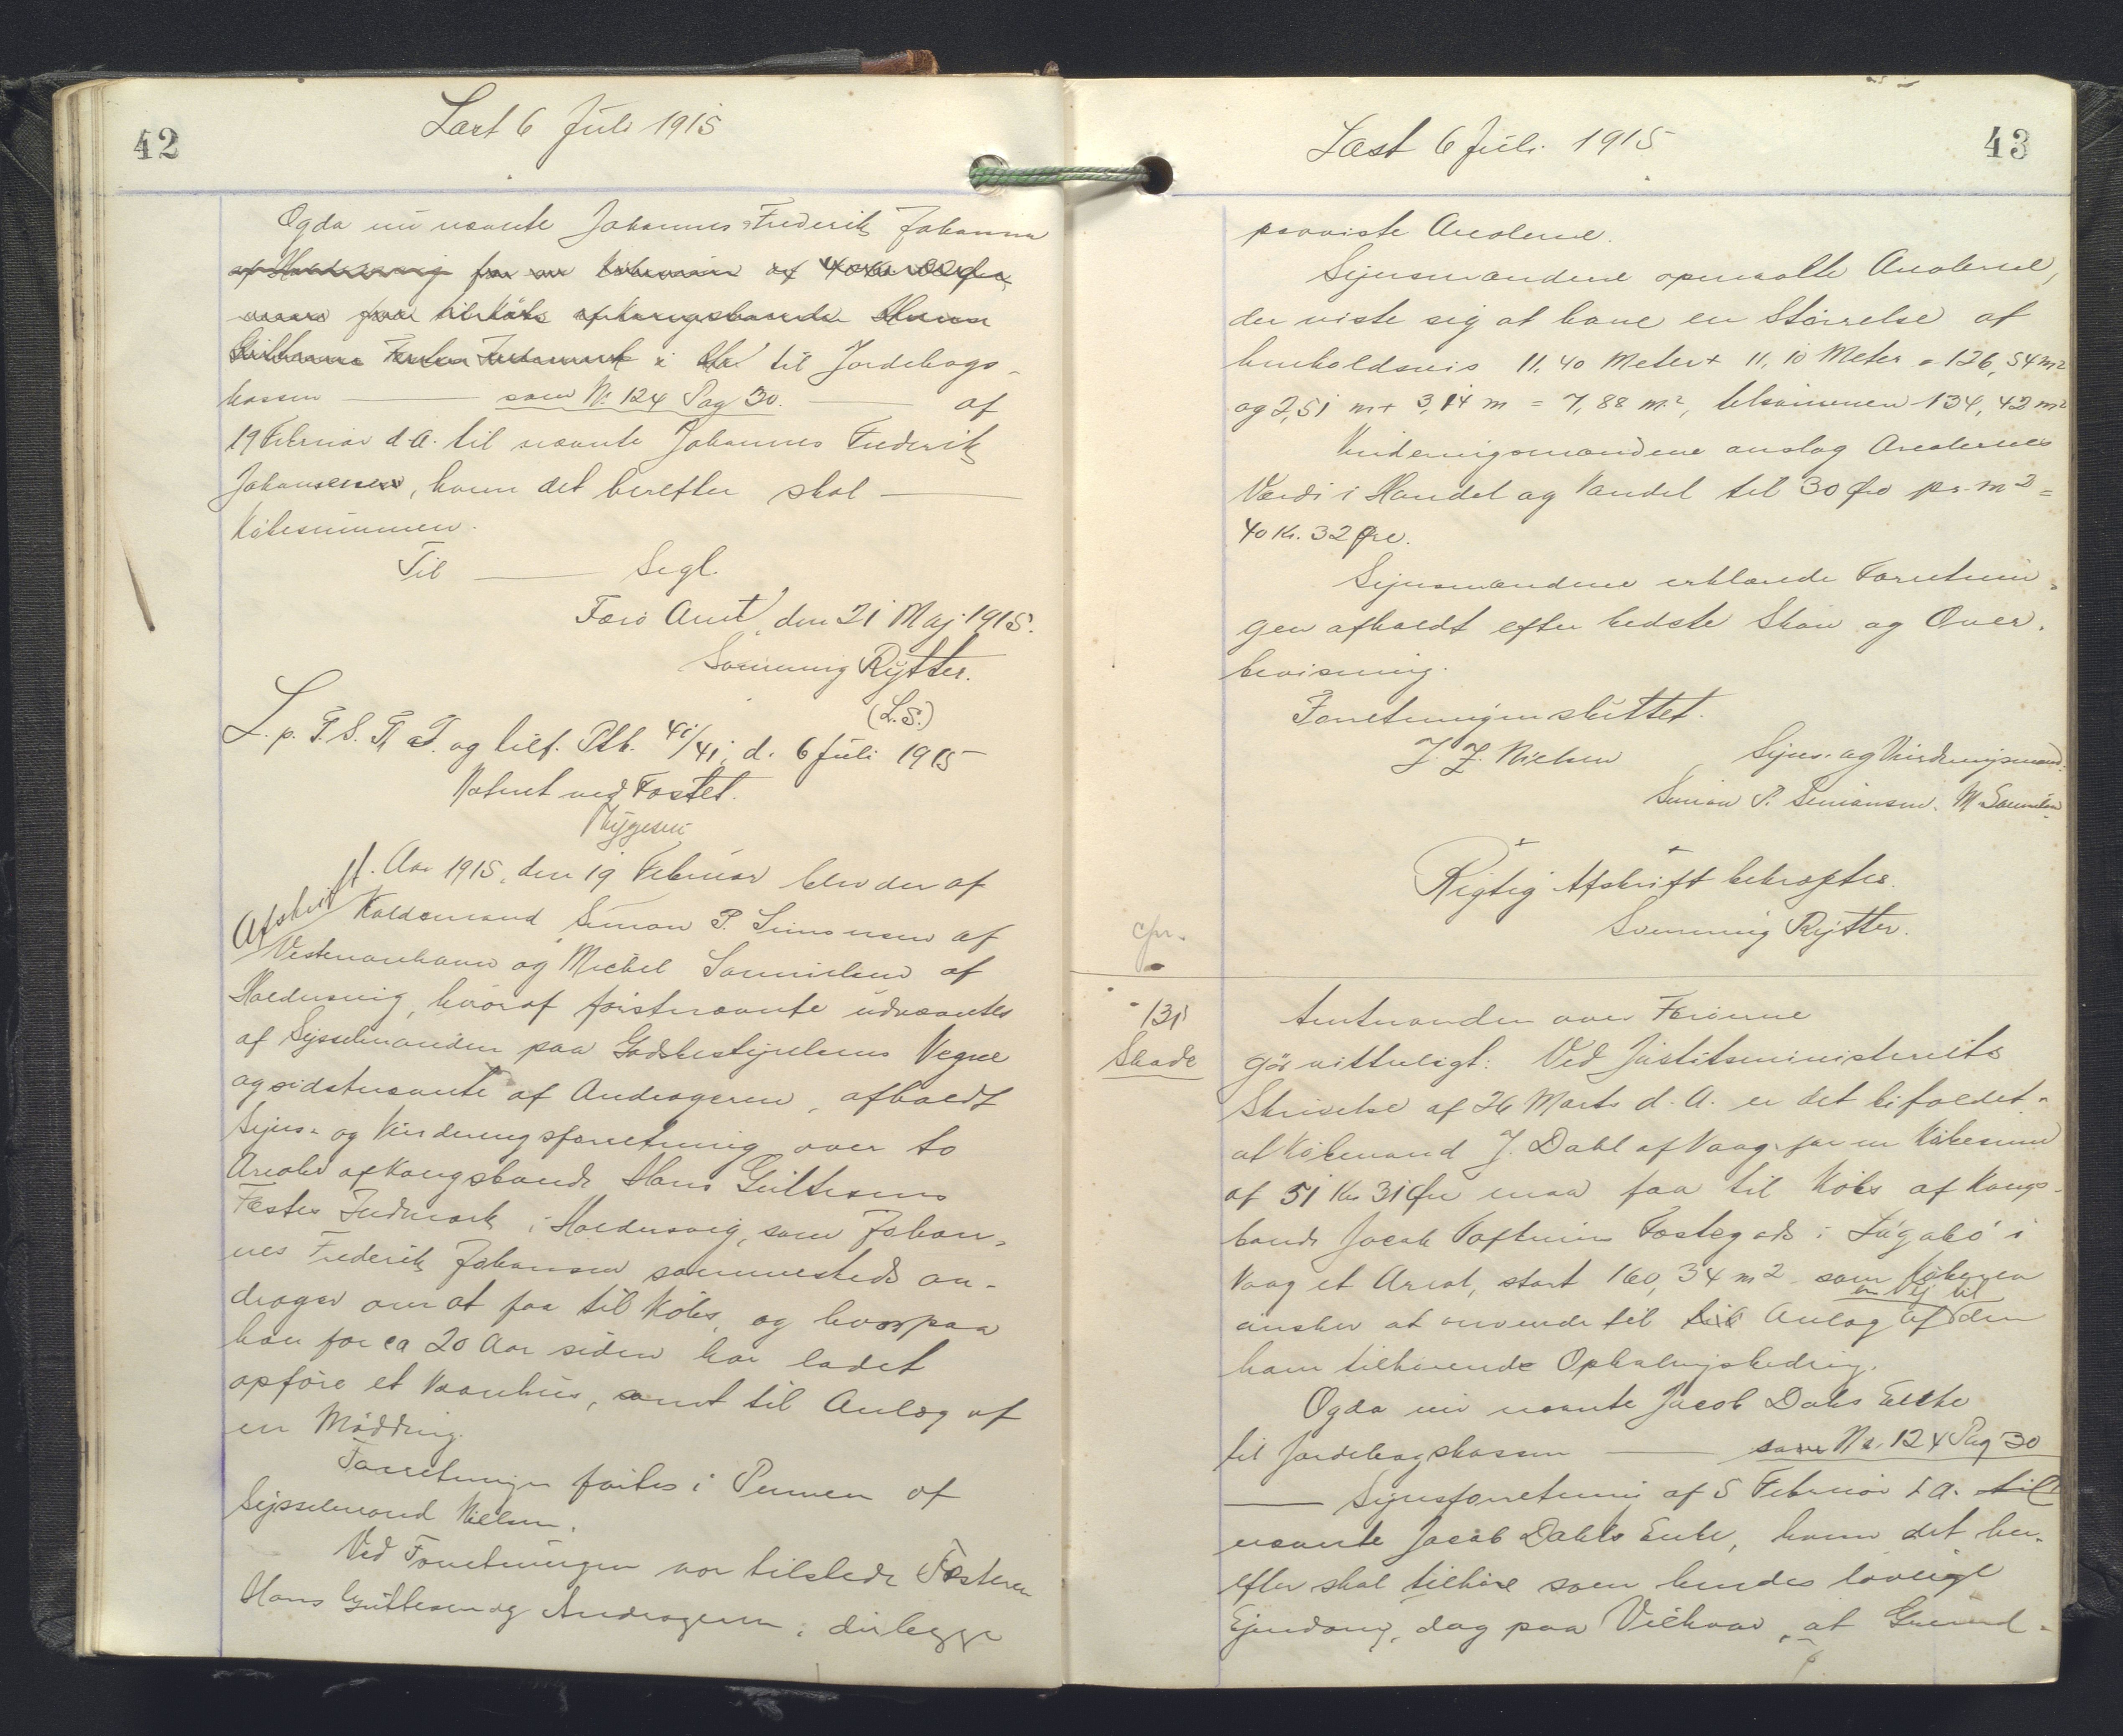 42
Læst 6 Juli 1915
Og da nu nævnte Johannes Frederik Johansen
af Haldersvig for en Købesum af 40 Kr. 32 Øre
maa faa til Købs af Kongsbonde Hans
Guttesens Fæstes Indmark i Ha. til Jordebogs-
kassen — som No 124 Pag 30. — af
19 Februar d.A. til nævnte Johannes Frederik
Johansen, hvem det herefter skal —
Købesummen.
Til — Segl.
Færø Amt, den 21 Maj 1915.
Svenning Rytter.
(L.S.)
L. p. F. S. R. T. og tilf. Ptb. 41/41, d. 6 Juli 1915
Noteret ved Fæstet.
Thygesen
Afskrift. Aar 1915, den 19 Februar blev der af
Kaldsmand Simon P. Simonsen af
Vestmanhavn og Michel Samuelsen af
Haldersvig, hvoraf førstnævnte udnævntes
af Sysselmanden paa Godsbestyrelsens Vegne
og sidstnævnte af Andrageren, afholdt
Syns- og Vurderingsforretning over to
Arealer af Kongsbonde Hans Guttesens
Fæstes Indmark i Haldersvig, som Johan-
nes Frederik Johansen sammesteds an-
drager om at faa til Købs, og hvorpaa
han for ca 20 Aar siden har ladet
opføre et Vaanhus, samt til Anlæg af
en Mødding.
Forretningen førtes i Pennen af
Sysselmand Nielsen.
Ved Forretningen var tilstede Fæsteren
Hans Guttesen og Andrageren; de begge
43
Læst 6 Juli 1915
paaviste Arealerne.
Synsmændene opmaalte Arealerne,
der viste sig at have en Størrelse af
henholdsvis 11,40 Meter + 11,10 Meter = 126,54 m2
og 2,51 m + 3,14 m = 7,88 m2, tilsammen 134,42 m2
Vurderingsmændene anslog Arealernes
Værdi i Handel og Vandel til 30 Øre pr. m2 =
40 Kr. 32 Øre.
Synsmændene erklærede Forretnin-
gen afholdt efter bedste Skøn og Over-
bevisning.
Forretningen sluttet.
J. J. Nielsen Syns- og Vurderingsmænd:
Simon P. Simonsen. M. Samuelsen
Rigtig Afskrift bekræftes.
Svenning Rytter.
cfr.
131
Skøde
Amtmanden over Færøerne
gør vitterligt: Ved Justitsministeriets
Skrivelse af 26 Marts d. A. er det bifaldet,
at Købmand J. Dahl af Vaag for en Købesum
af 51 Kr 31 Øre maa faa til Købs af Kongs-
bonde Jacob Toftums Fæstegods i Lúgabø i
Vaag et Areal, stort 160,34 m2 som Køberen
ønsker at anvende til Anlæg af en Vej til den
ham tilhørende Ophalingsbedding.
Og da nu nævnte Jacob Dahls Enke
til Jordebogskassen — som No. 124 Pag 30
— Synsforretning af 5 Februar d.A. til
nævnte Jacob Dahls Enke, hvem det her-
efter skal tilhøre som hendes lovlige
Ejendom, dog paa Vilkaar, at Grund-